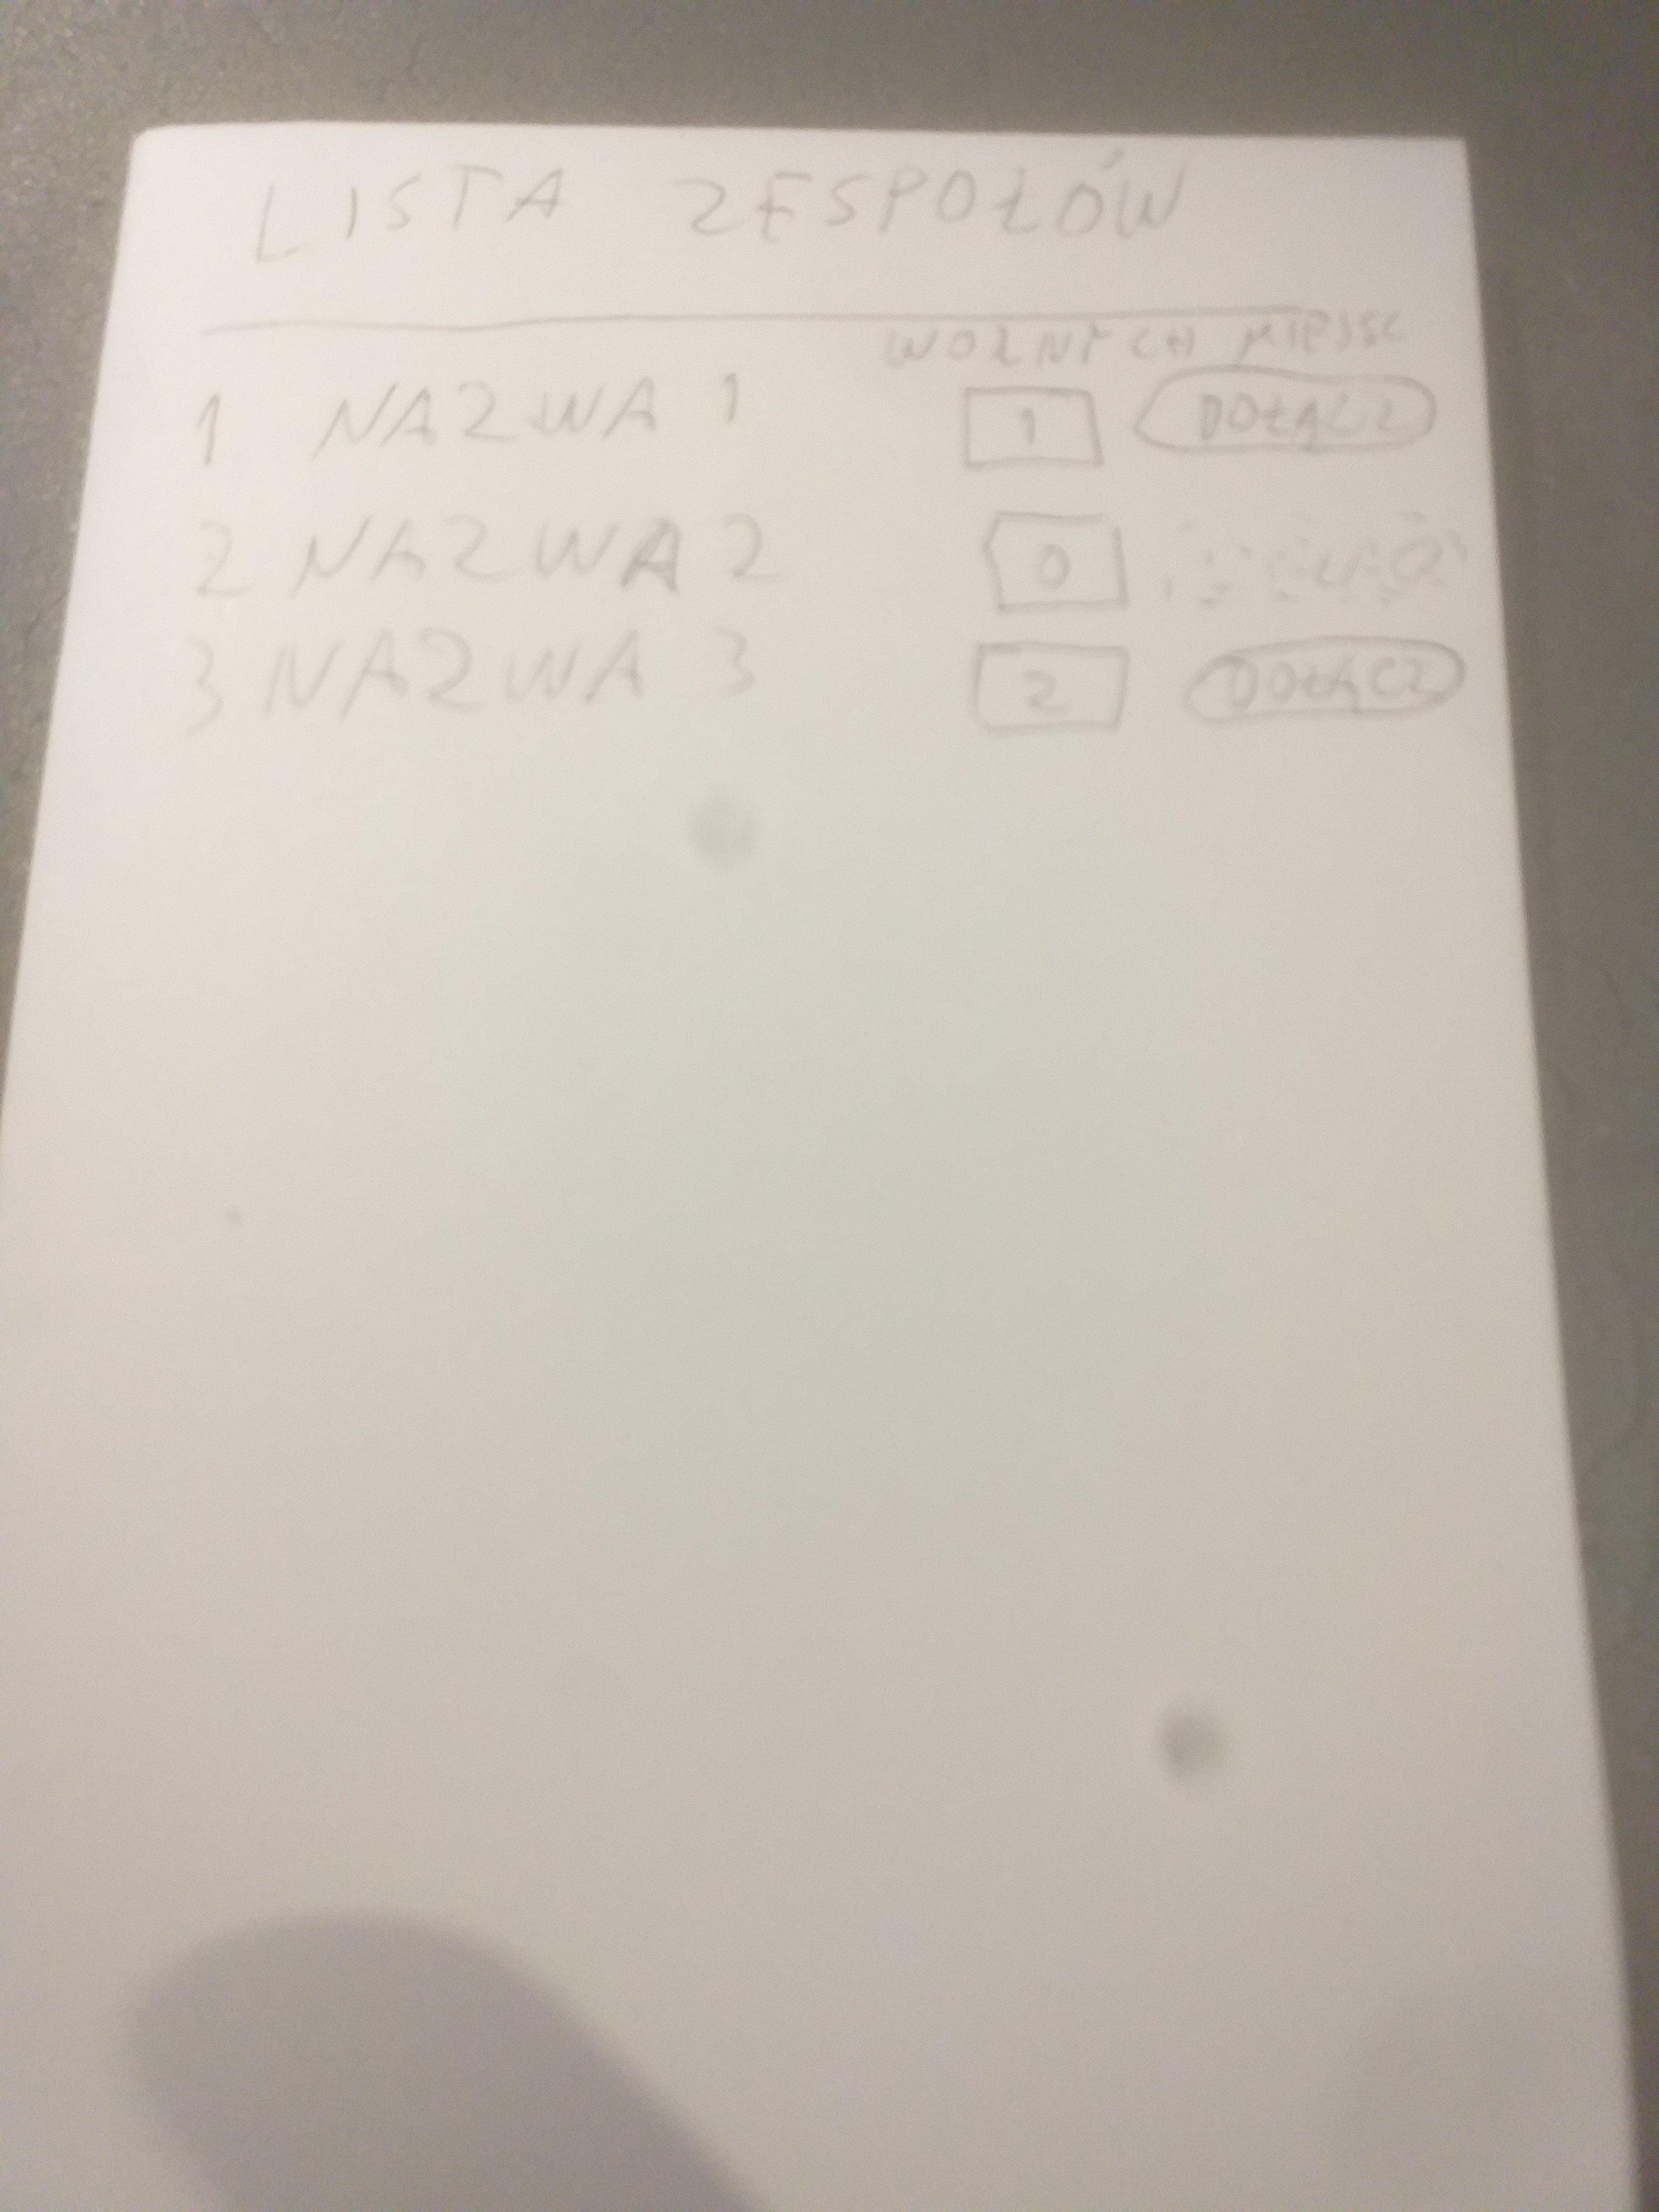 LISTA ZESPOŁÓW
WOLNYCH MIEJSC
1 NAZWA 1 1 DOŁĄCZ
2 NAZWA 2 0
3 NAZWA 3 2 DOŁĄCZ